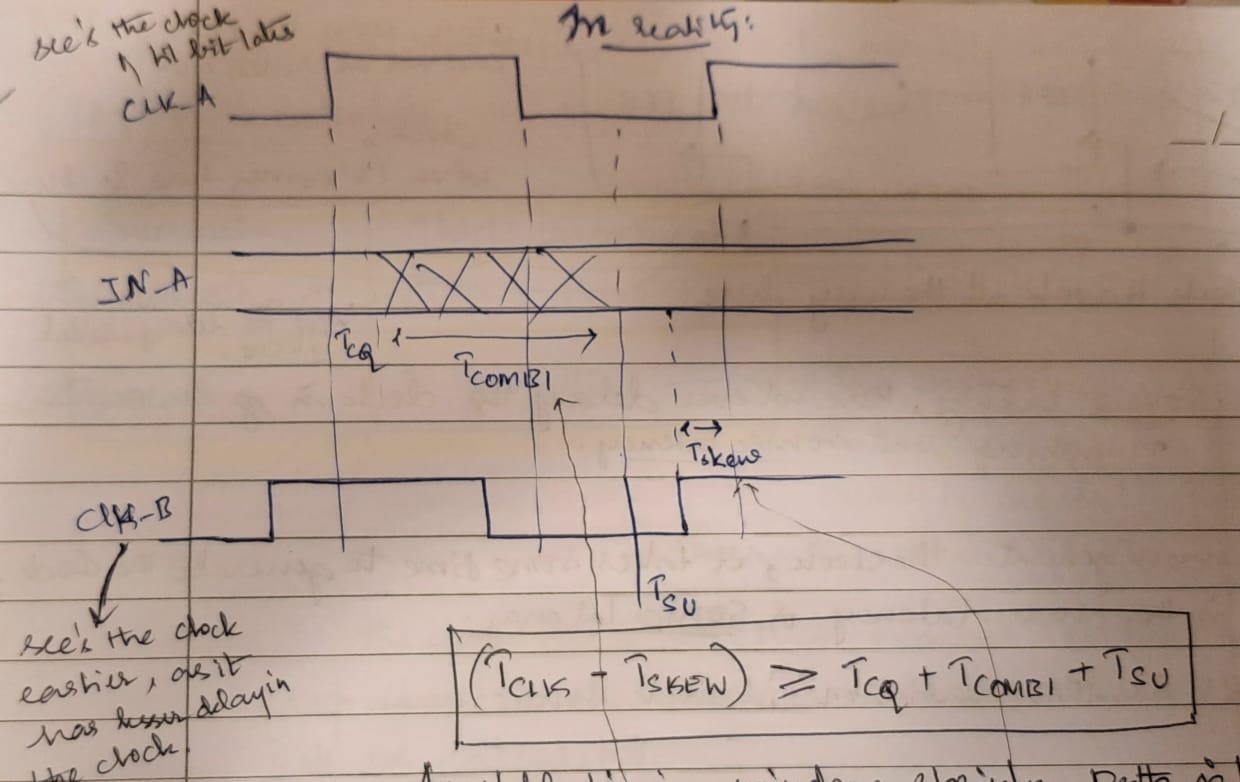 In reality:
see's the clock
lil bit later
CLK_A
IN_A
TCQ
TCOMBI
TSkew
CLK_B
TSU
see's the clock
earlier, as it
has lesser delay in
the clock
(TCLK - TSKEW) ≥ TCQ + TCOMBI + TSU